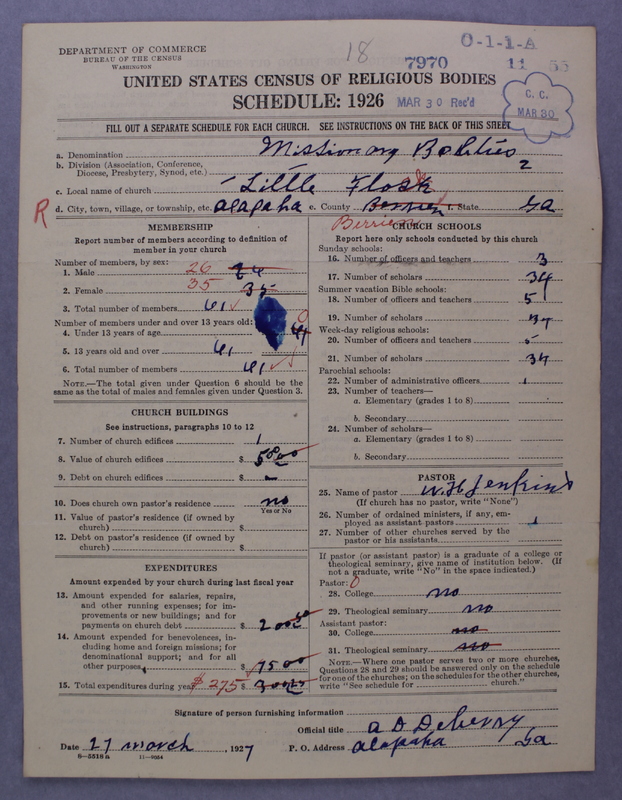 DEPARTMENT OF COMMERCE
BUREAU OF THE CENSUS
WASHINGTON
18
7970
O-1-1-A
11 55
UNITED STATES CENSUS OF RELIGIOUS BODIES
SCHEDULE: 1926
MAR 30 Rec'd
C. C.
MAR 30
FILL OUT A SEPARATE SCHEDULE FOR EACH CHURCH. SEE INSTRUCTIONS ON THE BACK OF THIS SHEET
a. Denomination Missionary
b. Division (Association, Conference, Diocese, Presbytery, Synod, etc.) 2
c. Local name of church Little Flock
R
d. City, town, village, or township, etc. alapaha e. County Berrien f. State Ga
Berrien
MEMBERSHIP
Report number of members according to definition of
member in your church
Number of members, by sex:
1. Male 26
2. Female 35 35
3. Total number of members 61
Number of members under and over 13 years old:
4. Under 13 years of age 0
5. 13 years old and over 61
6. Total number of members 61
NOTE.—The total given under Question 6 should be
same as the total of males and females given under Question 3.
CHURCH BUILDINGS
See instructions, paragraphs 10 to 12
7. Number of church edifices 1
8. Value of church edifices $ 500 00
9. Debt on church edifices $ -
10. Does church own pastor's residence no
Yes or No
11. Value of pastor's residence (if owned by
church) $
12. Debt on pastor's residence (if owned by
church) $
EXPENDITURES
Amount expended by your church during last fiscal year
13. Amount expended for salaries, repairs,
and other running expenses; for im-
provements or new buildings; and for
payments on church debt $ 200
14. Amount expended for benevolences, in-
cluding home and foreign missions; for
denominational support; and for all
other purposes $ 75 00
15. Total expenditures during year $ 275
CHURCH SCHOOLS
Report here only schools conducted by this church
Sunday schools:
16. Number of officers and teachers 3
17. Number of scholars 34
Summer vacation Bible schools:
18. Number of officers and teachers 5
19. Number of scholars
Week-day religious schools:
20. Number of officers and teachers
21. Number of scholars 34
Parochial schools:
22. Number of administrative officers 1
23. Number of teachers—
a. Elementary (grades 1 to 8)
b. Secondary
24. Number of scholars—
a. Elementary (grades 1 to 8)
b. Secondary
PASTOR
25. Name of pastor W. H Jenkins
(If church has no pastor, write "None")
26. Number of ordained ministers, if any, em-
ployed as assistant pastors 1
27. Number of other churches served by the
pastor or his assistants
If pastor (or assistant pastor) is a graduate of a college or
theological seminary, give name of institution below. (If
not a graduate, write "No" in the space indicated.)
Pastor: 0
28. College no
29. Theological seminary no
Assistant pastor:
30. College no
31. Theological seminary no
NOTE.—Where one pastor serves two or more churches,
Questions 28 and 29 should be answered only on the schedule
for one of the churches; on the schedules for the other churches,
write "See schedule for church."
Signature of person furnishing information
Official title a D Deberry
Date 27 march, 1927 P. O. Address alapaha Ga
8—5518 a 11—9354